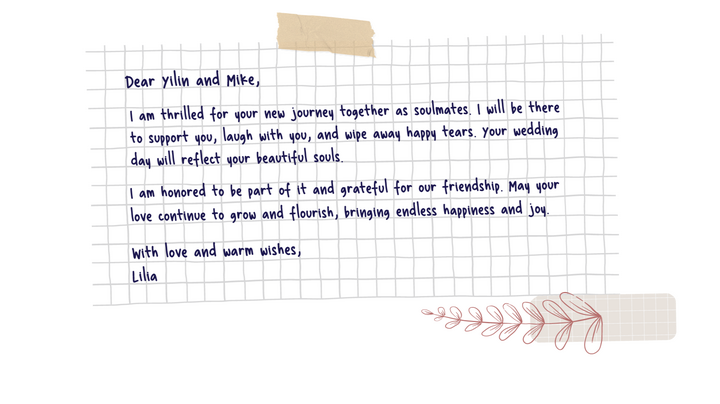 Dear Yilin and Mike,
I am thrilled for your new journey together as soulmates. I will be there
to support you, laugh with you, and wipe away happy tears. Your wedding
day will reflect your beautiful souls.
I am honored to be part of it and grateful for our friendship. May your
love continue to grow and flourish, bringing endless happiness and joy.
With love and warm wishes,
Lilia